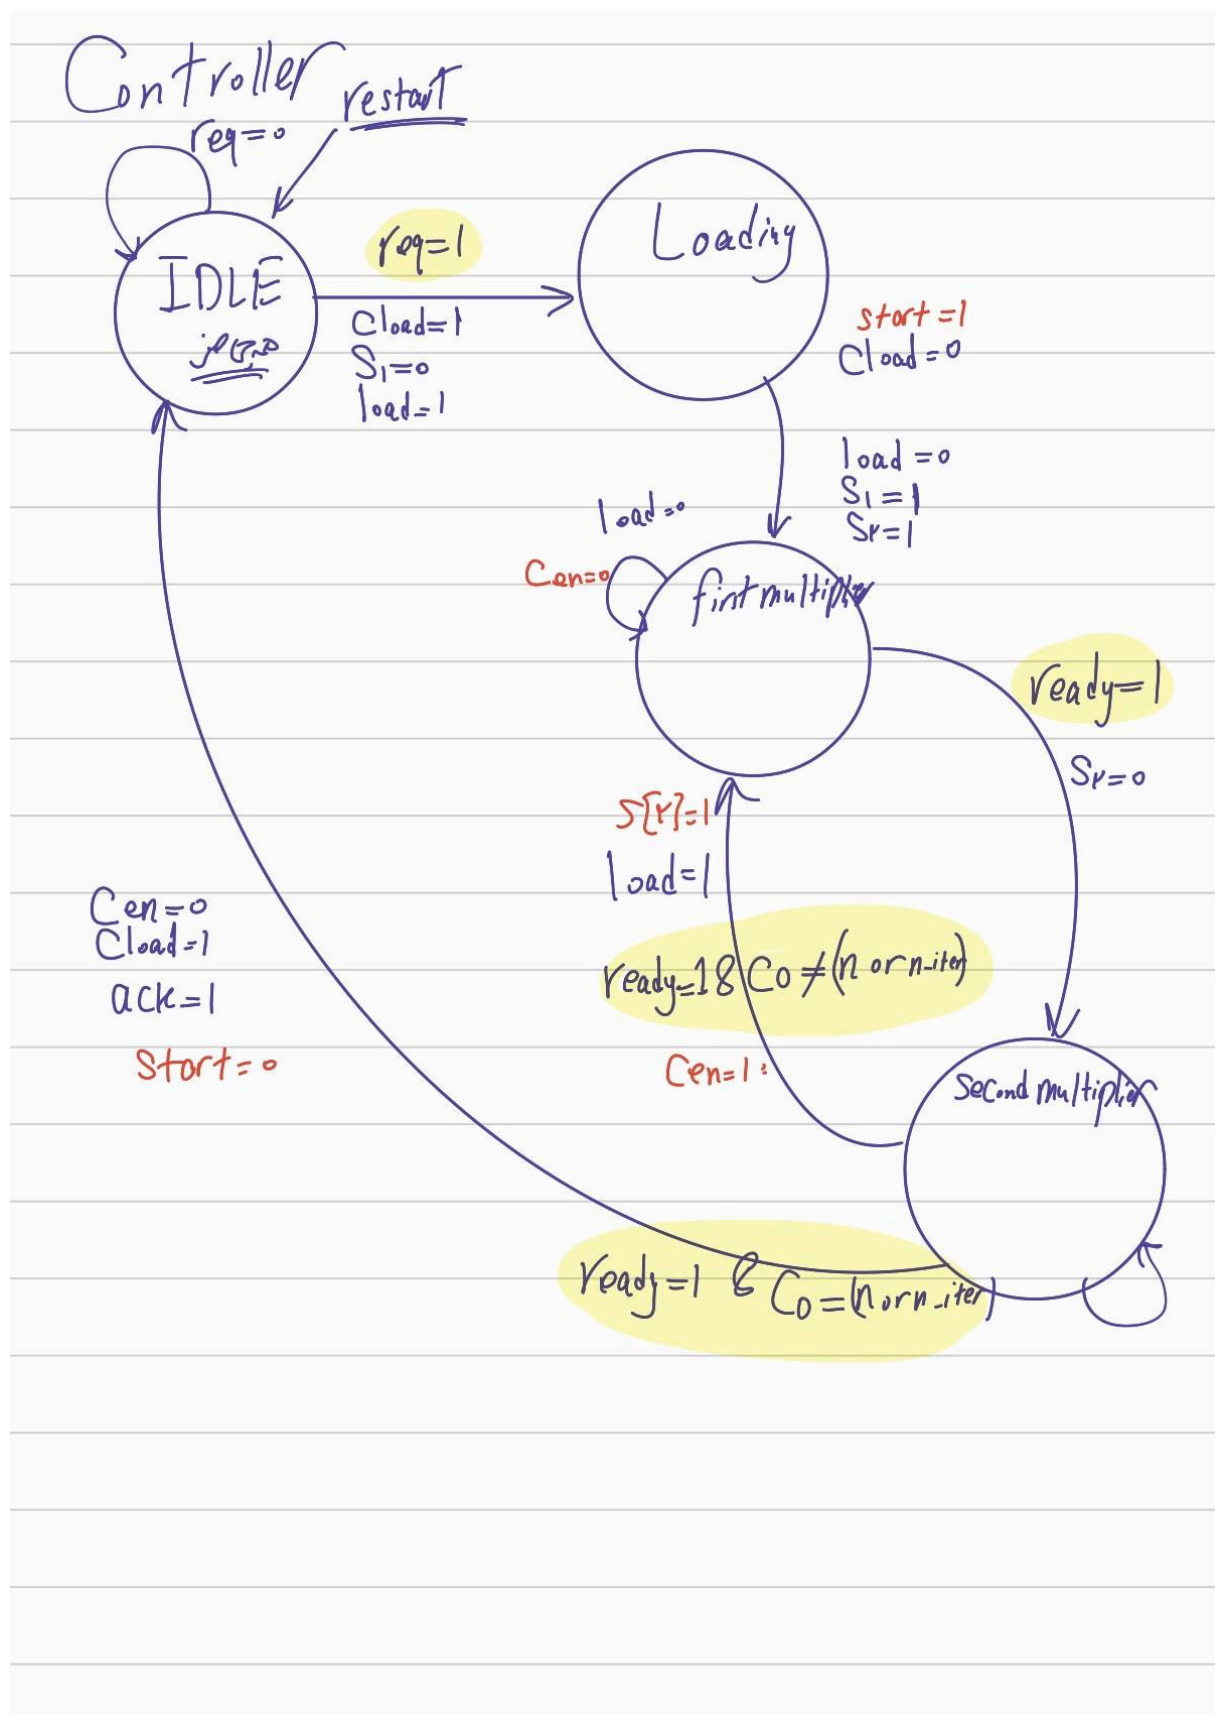 Controller
restart
req=0
IDLE
req=1
Cload=1
S1=0
load=1
Loading
start=1
Cload=0
load=0
S1=1
S2=1
load=0
Cen=0
first multiplier
ready=1
S2=0
S[2]=1
load=1
ready=1 & Co≠(n or n-iter)
Cen=1
Cen=0
Cload=1
ack=1
Start=0
second multiplier
ready=1 & Co=(n or n-iter)